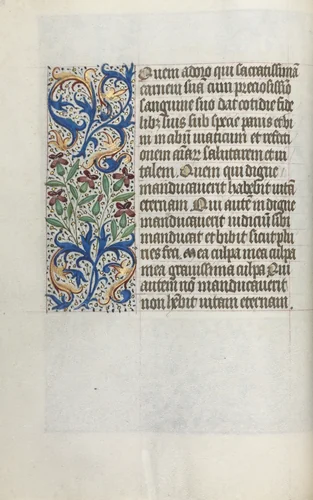 Quem adoro qui sacratissimā
carnem suā cum preciosissīo
sanguine suo dat cotidie fide
libꝫ suis sub specie panis et vi
ni in
viaticum et refecti
onem aīar salutarem et vi
talem. Quem qui digne
manducaverit habebit vitā
eternam. Qui autē indigne
manducaverit iudiciū sibi
manducat et bibit sicut plu
ries feci. Mea culpa mea culpa
mea gravissima culpa Qui
autem nō manducaverit
non hēbit vitam eternam.